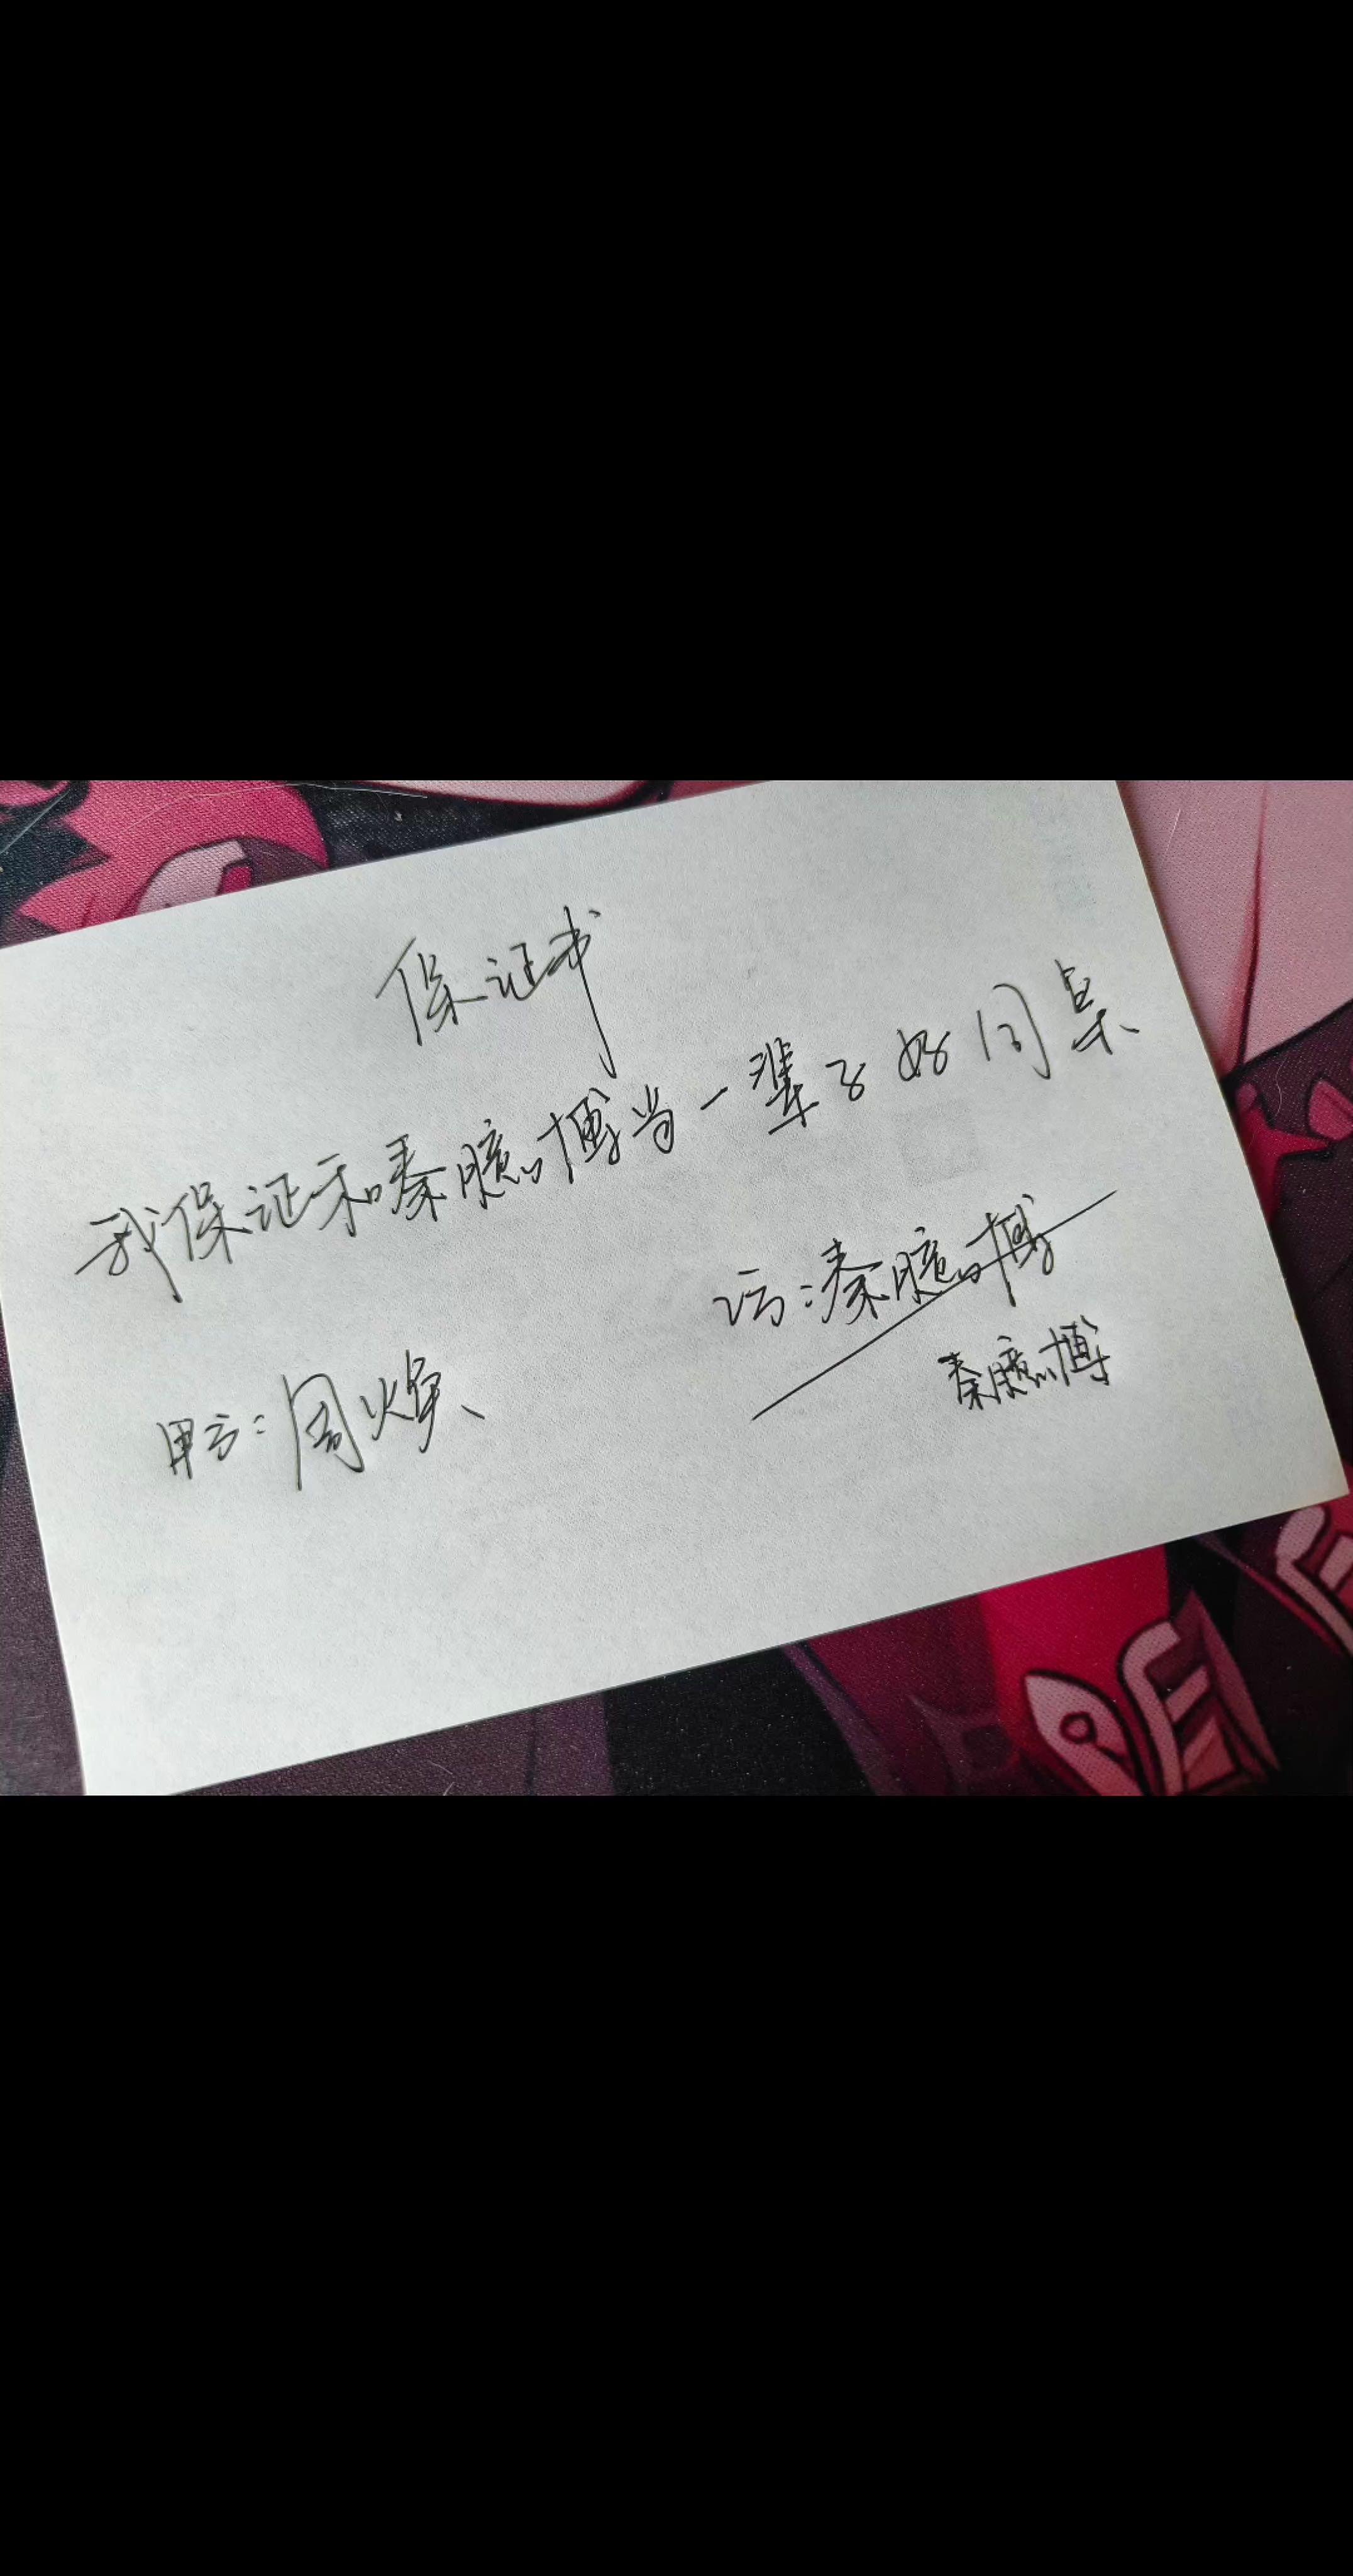 保证书
我保证和秦臆博当一辈子好同桌
乙方:秦臆博
甲方:周焕
秦臆博